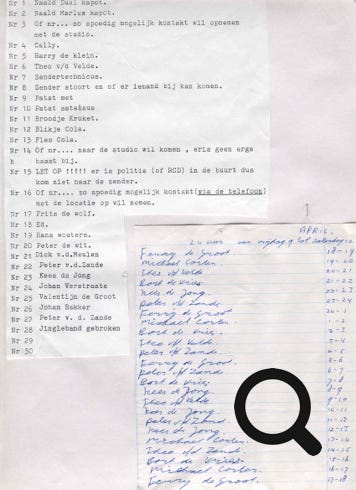 Nr 1 Naald Dual kapot.
Nr 2 Naald Marlux kapot.
Nr 3 Of nr.... zo spoedig mogelijk kontakt wil opnemen
met de studio.
Nr 4 Cally.
Nr 5 Harry de klein.
Nr 6 Theo v/d Velde.
Nr 7 Zendertechnicus.
Nr 8 Zender stoort en of er iemand bij kan komen.
Nr 9 Patat met
Nr 10 Patat
Nr 11 Broodje Kroket.
Nr 12 Blikje Cola.
Nr 13 Fles Cola.
Nr 14 Of nr.... naar de studio wil komen , eris geen erge
h haast bij.
Nr 15 LET OP !!!!! er is politie (of RCD) in de buurt dus
kom niet naar de zender.
Nr 16 Of nr.... zo spoedig mogelijk kontakt(via de telefoon)
met de locatie op wil nemen.
Nr 17 Frits de wolf.
Nr 18 Ed.
Nr 19 Hans wouters.
Nr 20 Peter de wit.
Nr 21 Dick v.d.Meulen
Nr 22 Peter v.d.Zande
Nr 23 Kees de Jong
Nr 24 Johan Verstraate
Nr 25 Valentijn de Groot
Nr 26 Johan Bakker
Nr 27 Peter v. d. Zande
Nr 28 Jingleband gebroken
Nr 29
Nr 30
APRIL.
24 uurs van vrijdag 9 tot zaterdag
Ferry de Groot 18-19
Michael Corter. 19-20
Theo v/d Velde 20-21
Bart de Vries. 21-22
Kees de Jong. 22-23
Peter v/d Zande. 23-24
Ferry de Groot 24-1
Michael Corter. 1-2
Bart de Vries. 2-3
Theo v/d Velde. 3-4
Peter v/d Zande. 4-5
Ferry de Groot. 5-6
Peter v/d Zande 6-7
Bart de Vries. 7-8
Kees de Jong. 8-9
Theo v/d Velde. 9-10
Kees de Jong. 10-11
Peter v/d Zand. 11-12
Kees de Jong. 12-13
Michael Corter. 13-14
Theo v/d Zande. 14-15
Bart de Vries. 15-16
Michael Corter. 16-17
Ferry de Groot. 17-18